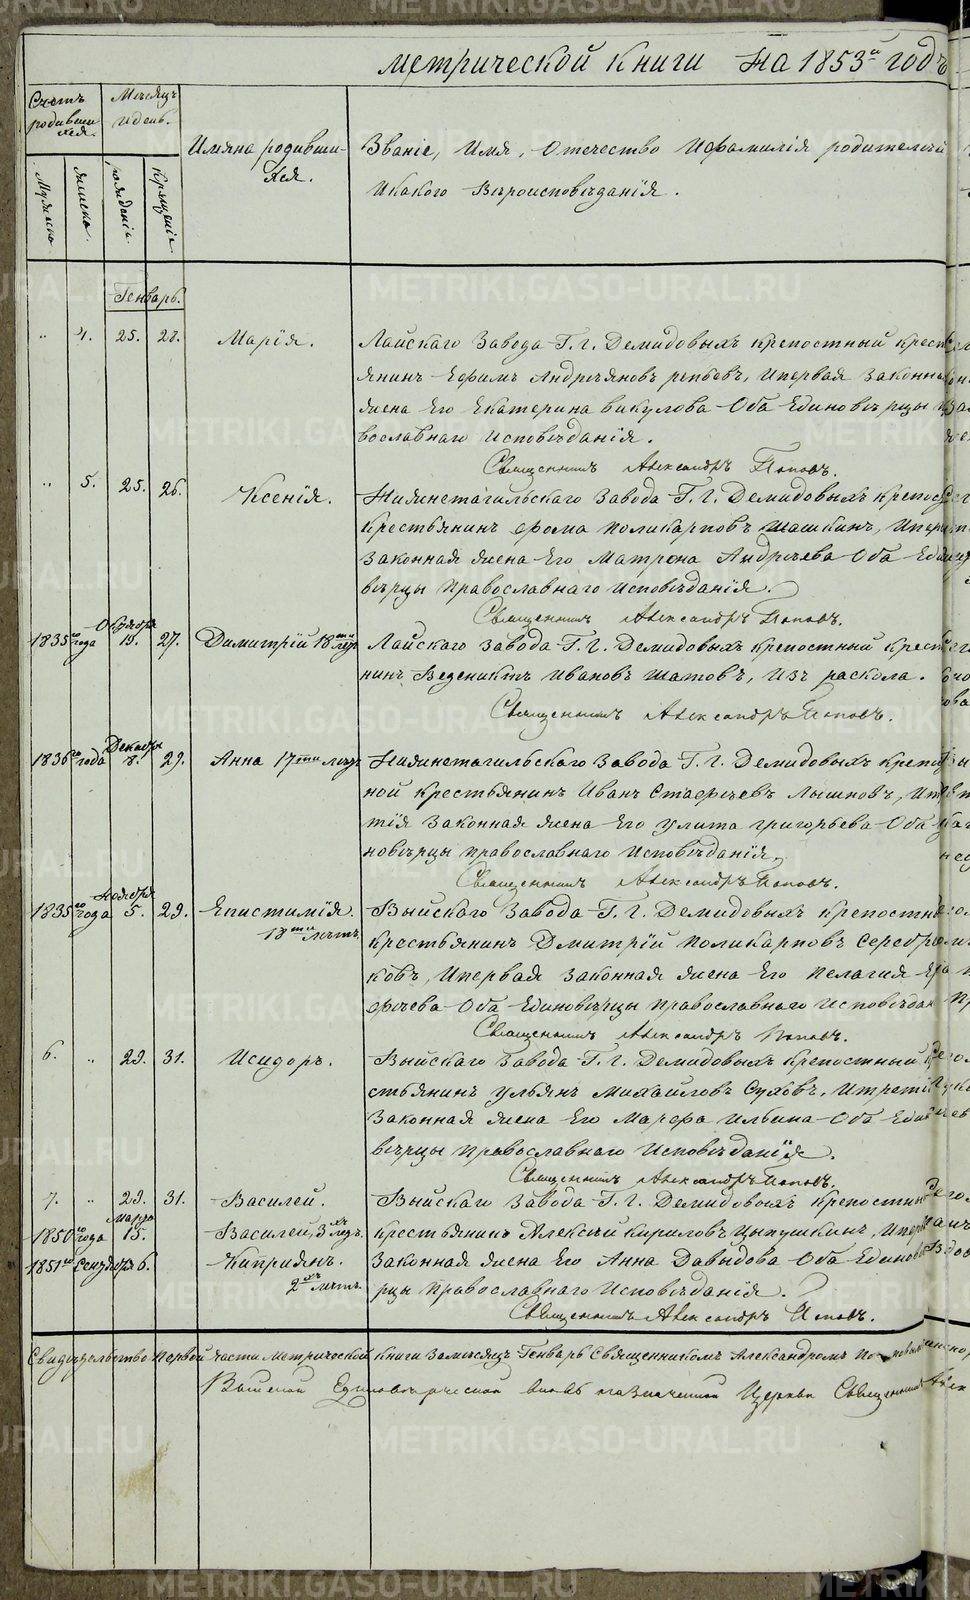 Метрической книги на 1853й годъ
Счетъ родившихся.
Месяцъ и день.
Имяна родившихся.
Званіе, Имя, Отечество И фамилія родителей
Икакого Вероисповеданія.
Мужеска.
женска.
рожденія.
крещенія.
Генварь.
" 4. 25. 28. Марія. Лайскаго Завода Г.г. Демидовыхъ крепостный крест
янинъ Ефимъ Андреяновъ репьевъ, Ипервая Законная
жена Его Екатерина викулова Оба Единоверцы пра
вославнаго Исповеданія.
Священникъ Александръ Поповъ.
" 5. 25. 26. Ксенія. Нижнетагильскаго Завода Г.г. Демидовыхъ крепос
крестьянинъ фома поликарповъ Шашкинъ, Ипер
Законная жена Его Матрона Андреева Оба Един
верцы православнаго исповеданія.
Священникъ Александръ Поповъ.
1835го года Октября 19. 27. Димитрій 18ти летъ Лайскаго завода Г.г. Демидовыхъ крепостный крест
нинъ Веденикть Ивановъ Шатовъ, Изъ раскола.
Священникъ Александръ Поповъ.
1836го года Декабря 8. 29. Анна 17ти летъ Нижнетагильскаго Завода Г.г. Демидовыхъ крепост
ной крестьянинъ Иванъ Стафеевъ Лышновъ, Итре
тія Законная жена Его Улита григорьева Оба
новерцы православнаго Исповеданія,
Священникъ Александръ Поповъ.
1835го года Ноября 5. 29. Епистимія Выйскаго Завода Г.г. Демидовыхъ крепостн
18ти летъ. крестьянинъ Дмитрій поликарповъ Серебря
ковъ, Ипервая Законная жена Его пелагия Ера
фѣева Оба Единоверцы православнаго исповедан
Священникъ Александръ Поповъ.
6. " 29. 31. Исидоръ. Выйскаго Завода Г.г. Демидовыхъ крепостный кре
стьянинъ Ульянъ Михайловъ Суховъ, Итретія
Законная жена Его Марфа Ильина Оба Един
верцы православнаго Исповеданія.
Священникъ Александръ Поповъ.
7. " 29. 31. Василей. Выйскаго Завода Г.г. Демидовыхъ крепостны
1850го года Марта 15. Василей, 3хъ летъ. крестьянинъ Алексей кириловъ Цыпушкинъ, Иперв
1851го Сентября 6. Киприянъ. Законная жена Его Анна Давыдова Оба Единове
2хъ летъ. рцы православнаго Исповеданія.
Священникъ Александръ Поповъ.
Свидетельство Первой части Метрической книги За месяцъ Генварь Священникомъ Александромъ Поповым
Единоверческой вновь назначенной Церкви Священник
METRIKI.GASO-URAL.RU